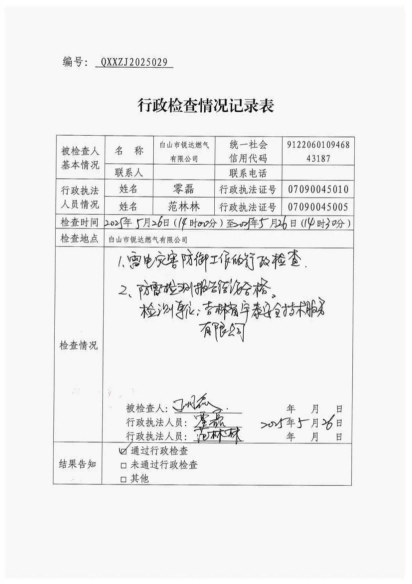 编号: QXXZJ2025029
行政检查情况记录表
被检查人基本情况 名称 白山市锐达燃气有限公司 统一社会信用代码 912206010946843187
联系人 联系电话
行政执法人员情况 姓名 零磊 行政执法证号 07090045010
姓名 范林林 行政执法证号 07090045005
检查时间 2025年5月26日(14时00分)至2025年5月26日(14时30分)
检查地点 白山市锐达燃气有限公司
检查情况
1、雷电灾害防御工作的行政检查.
2、防雷检测报告结论合格。
检测单位:吉林省宇泰安全技术服务
有限公司
被检查人: 年 月 日
行政执法人员: 零磊 2025年5月26日
行政执法人员: 范林林
结果告知
☑ 通过行政检查
□ 未通过行政检查
□ 其他